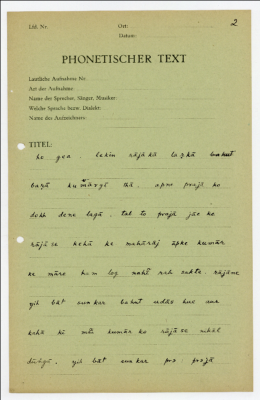 Lfd. Nr.
Ort:
2
Datum:
PHONETISCHER TEXT
Lautliche Aufnahme Nr.
Art der Aufnahme:
Name der Sprecher, Sänger, Musiker:
Welche Sprache bezw. Dialekt:
Name des Aufzeichners:
TITEL:
ho gea. lekin rājākā laṛkā bahut
baṛā kumārgi thā, apne prajā ko
dukh dene lagā, tab to prajā jāe ke
rājā se kahā ke mahārāj āpke kumār
ke māre ham log nahī rah sakte. rājāne
yih bāt sunkar bahut udās hue aur
kahā ki mãi kumār ko rājā se nikāl
dūgā, yih bāt sunkar prajā